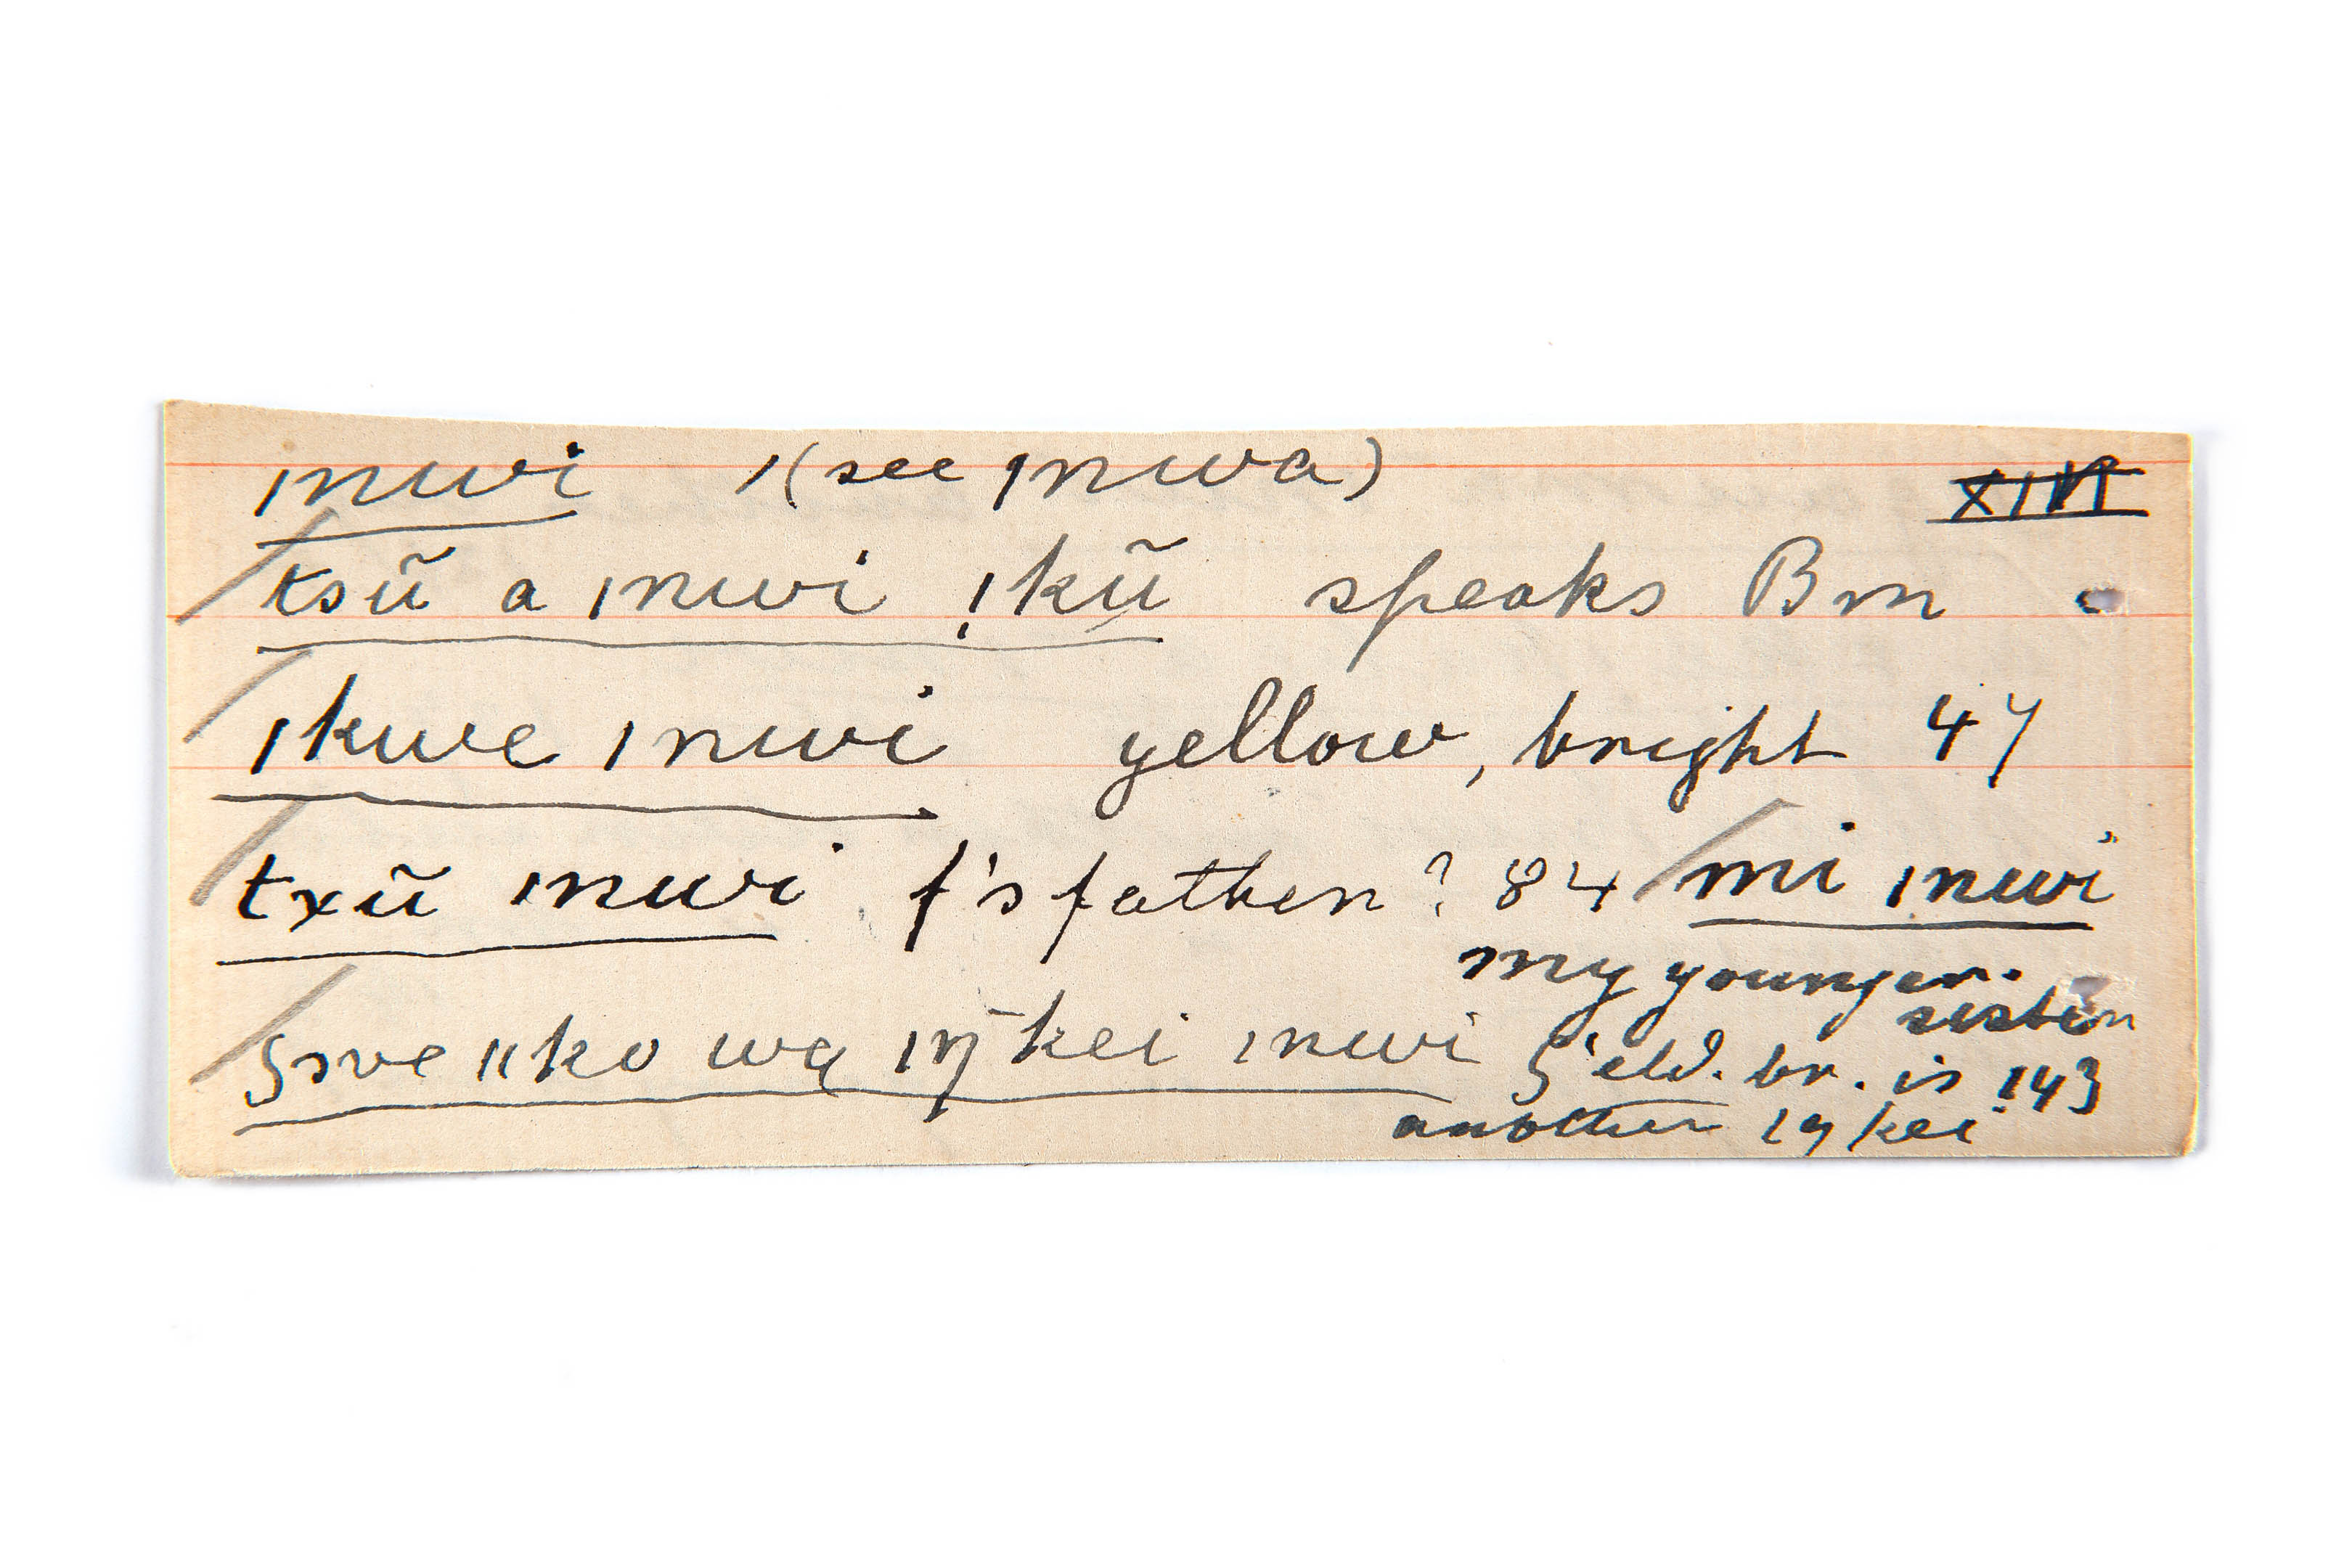 ınwi ı(see ınwa) XIVI
tsũ a ınwi !kũ speaks Bm
ıkwe ınwi yellow, bright 47
txũ ınwi f's father? 84 mi ınwi
my younger sister
swe ııko wa ıŋ̄kei ınwi eld. br. is 143
another ıŋkei